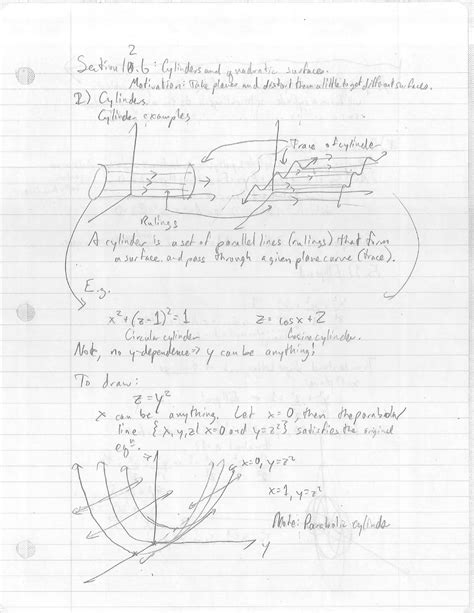 Section 12.6: Cylinders and quadratic surfaces.
Motivation: Take planes and distort them a little to get different surfaces.
I) Cylinders
Cylinder examples
Trace of cylinder
Rulings
A cylinder is a set of parallel lines (rulings) that form
a surface and pass through a given plane curve (trace).
E.g.
x²+(z-1)²=1 z = cos x + 2
Circular cylinder Cosine cylinder.
Note, no y-dependence ⇒ y can be anything!
To draw:
z=y²
x can be anything. Let x=0, then the parabola/
line { x,y,z| x=0 and y=z²} satisfies the original
eqⁿ.
x=0, y=z²
x=1, y=z²
y
Note: Parabolic cylinder